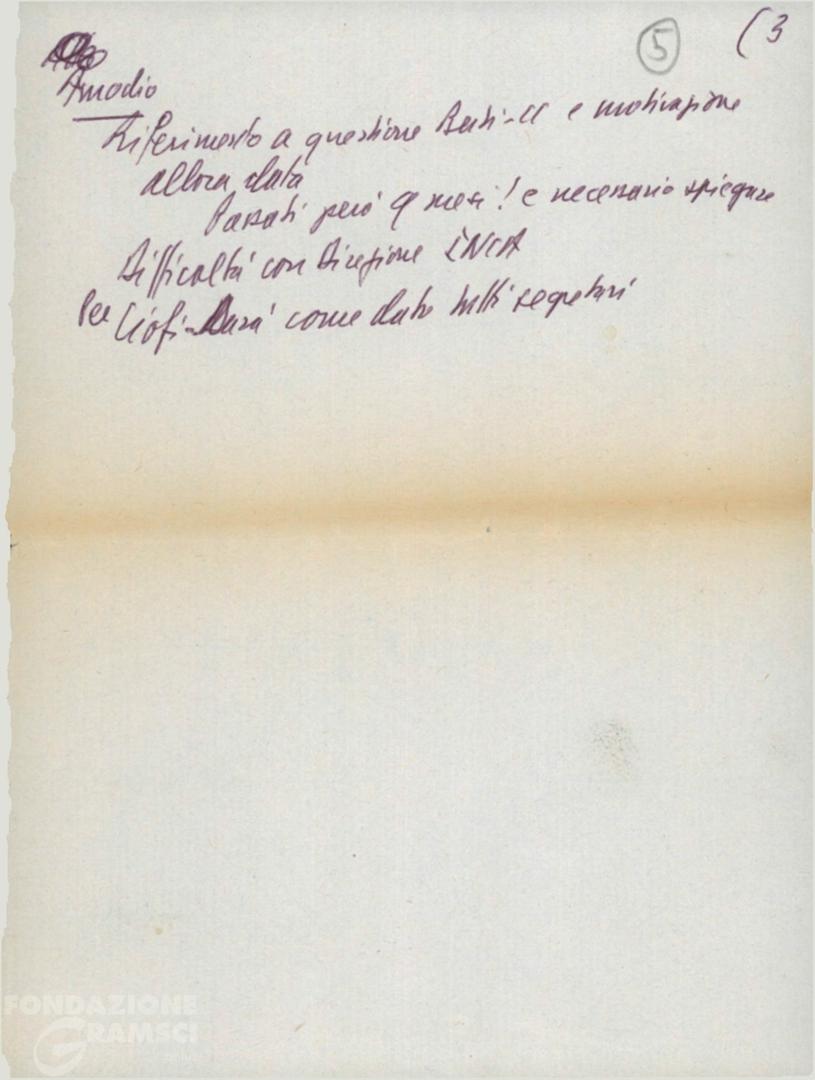 5
(3
Amodio
Riferimento a questione e motivazione
allora data
Passati però 9 mesi! e necessario spiegare
Difficoltà con Direzione INCA
Per Ciofi come dato tutti segretari
FONDAZIONE
GRAMSCI